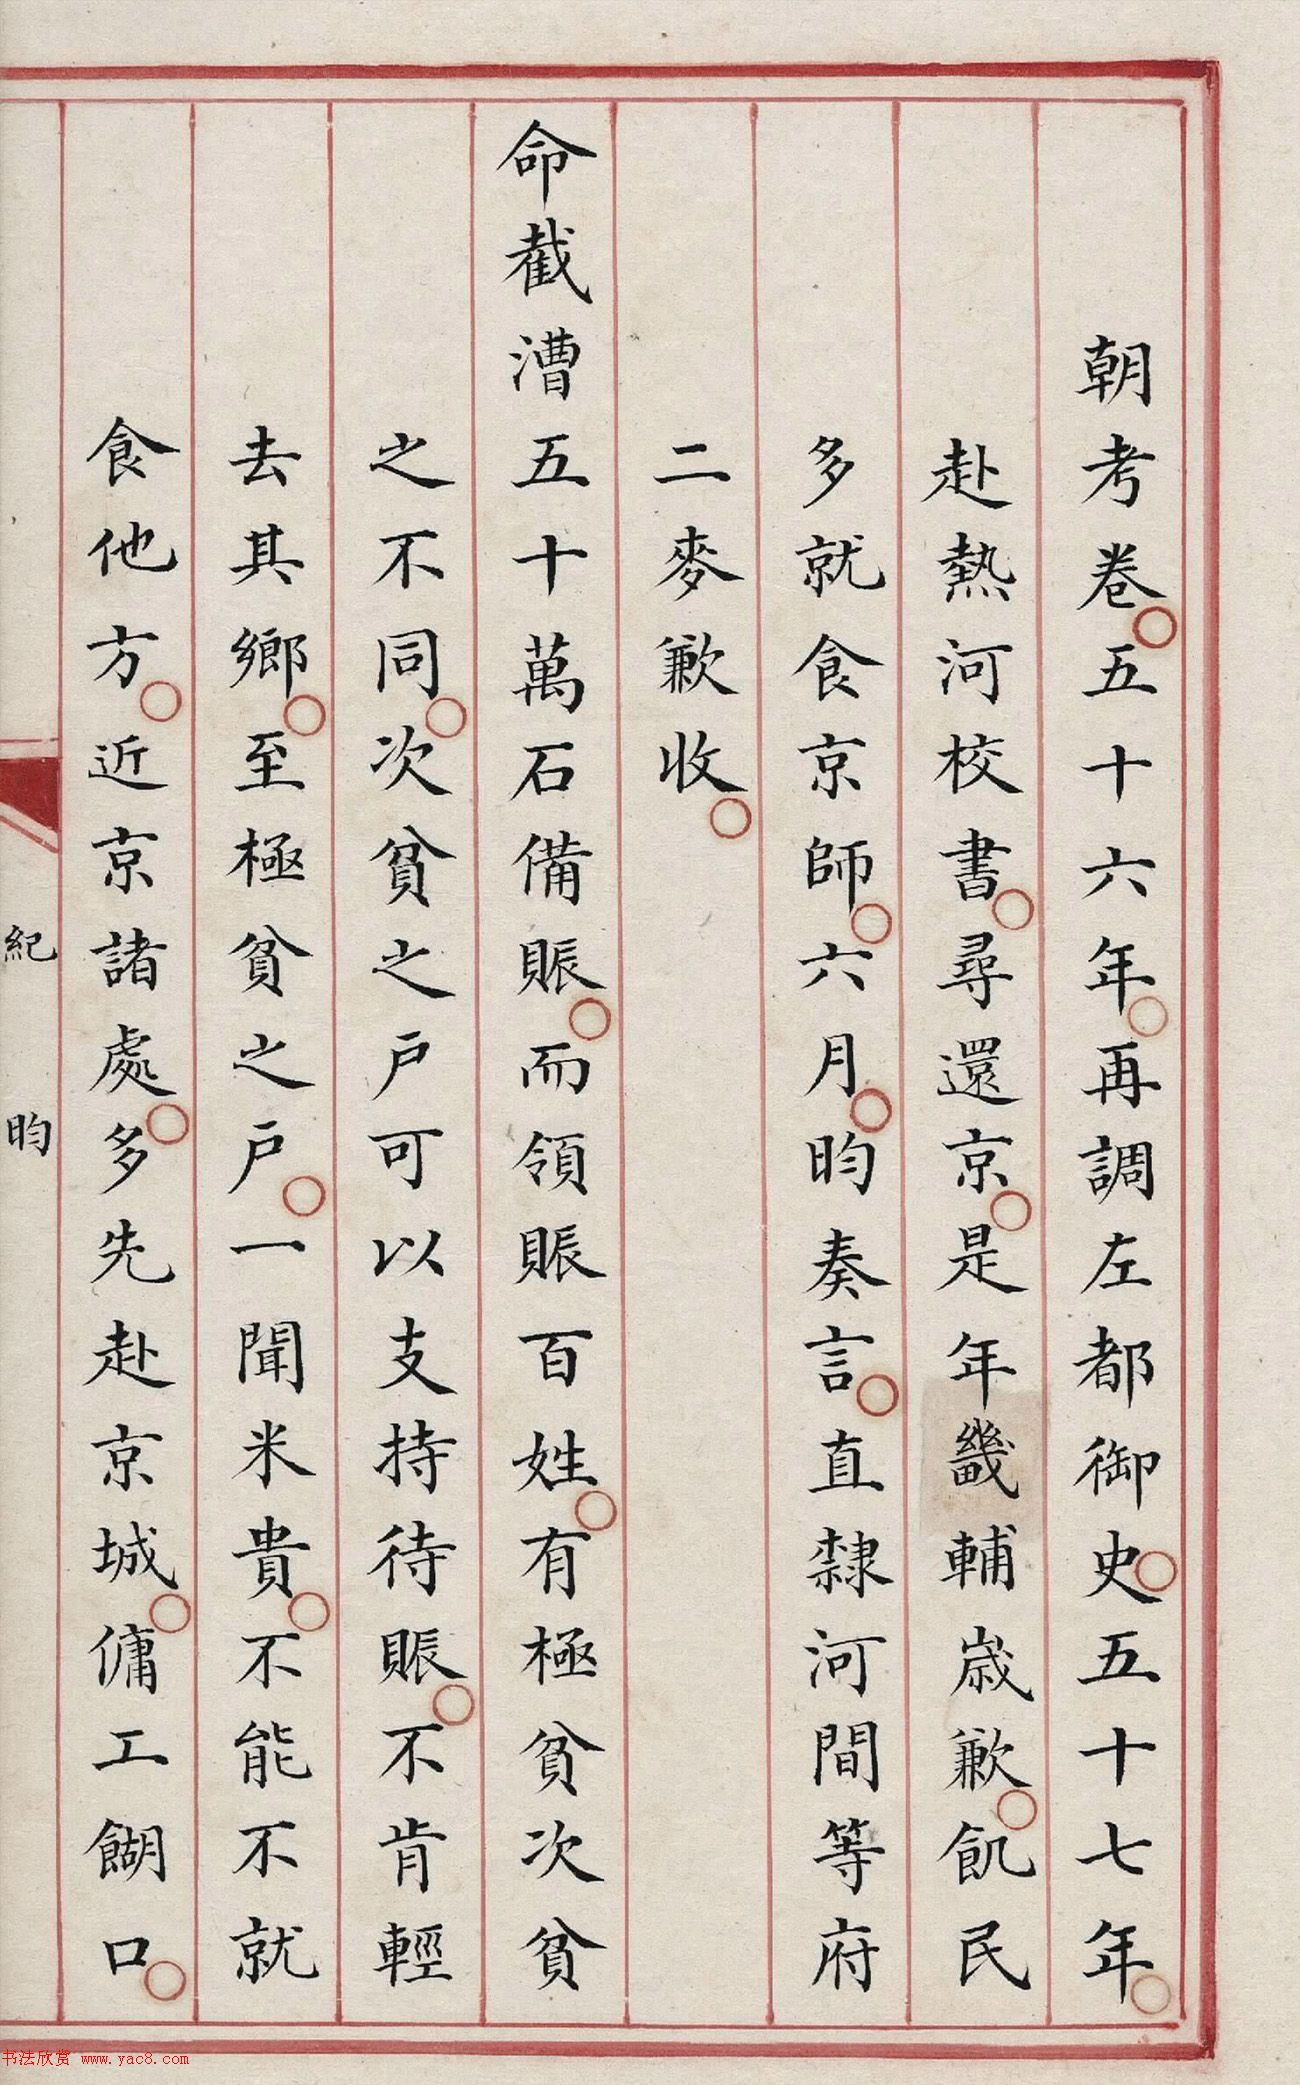 朝考卷五十六年再調左都御史五十七年
赴熱河校書尋還京是年畿輔歲歉飢民
多就食京師六月昀奏言直隸河間等府
二麥歉收
命截漕五十萬石備賑而領賑百姓有極貧次貧
之不同次貧之戶可以支持待賑不肯輕
去其鄉至極貧之戶一聞米貴不能不就
食他方近京諸處多先赴京城傭工餬口
紀昀
书法欣赏 www.yac8.com